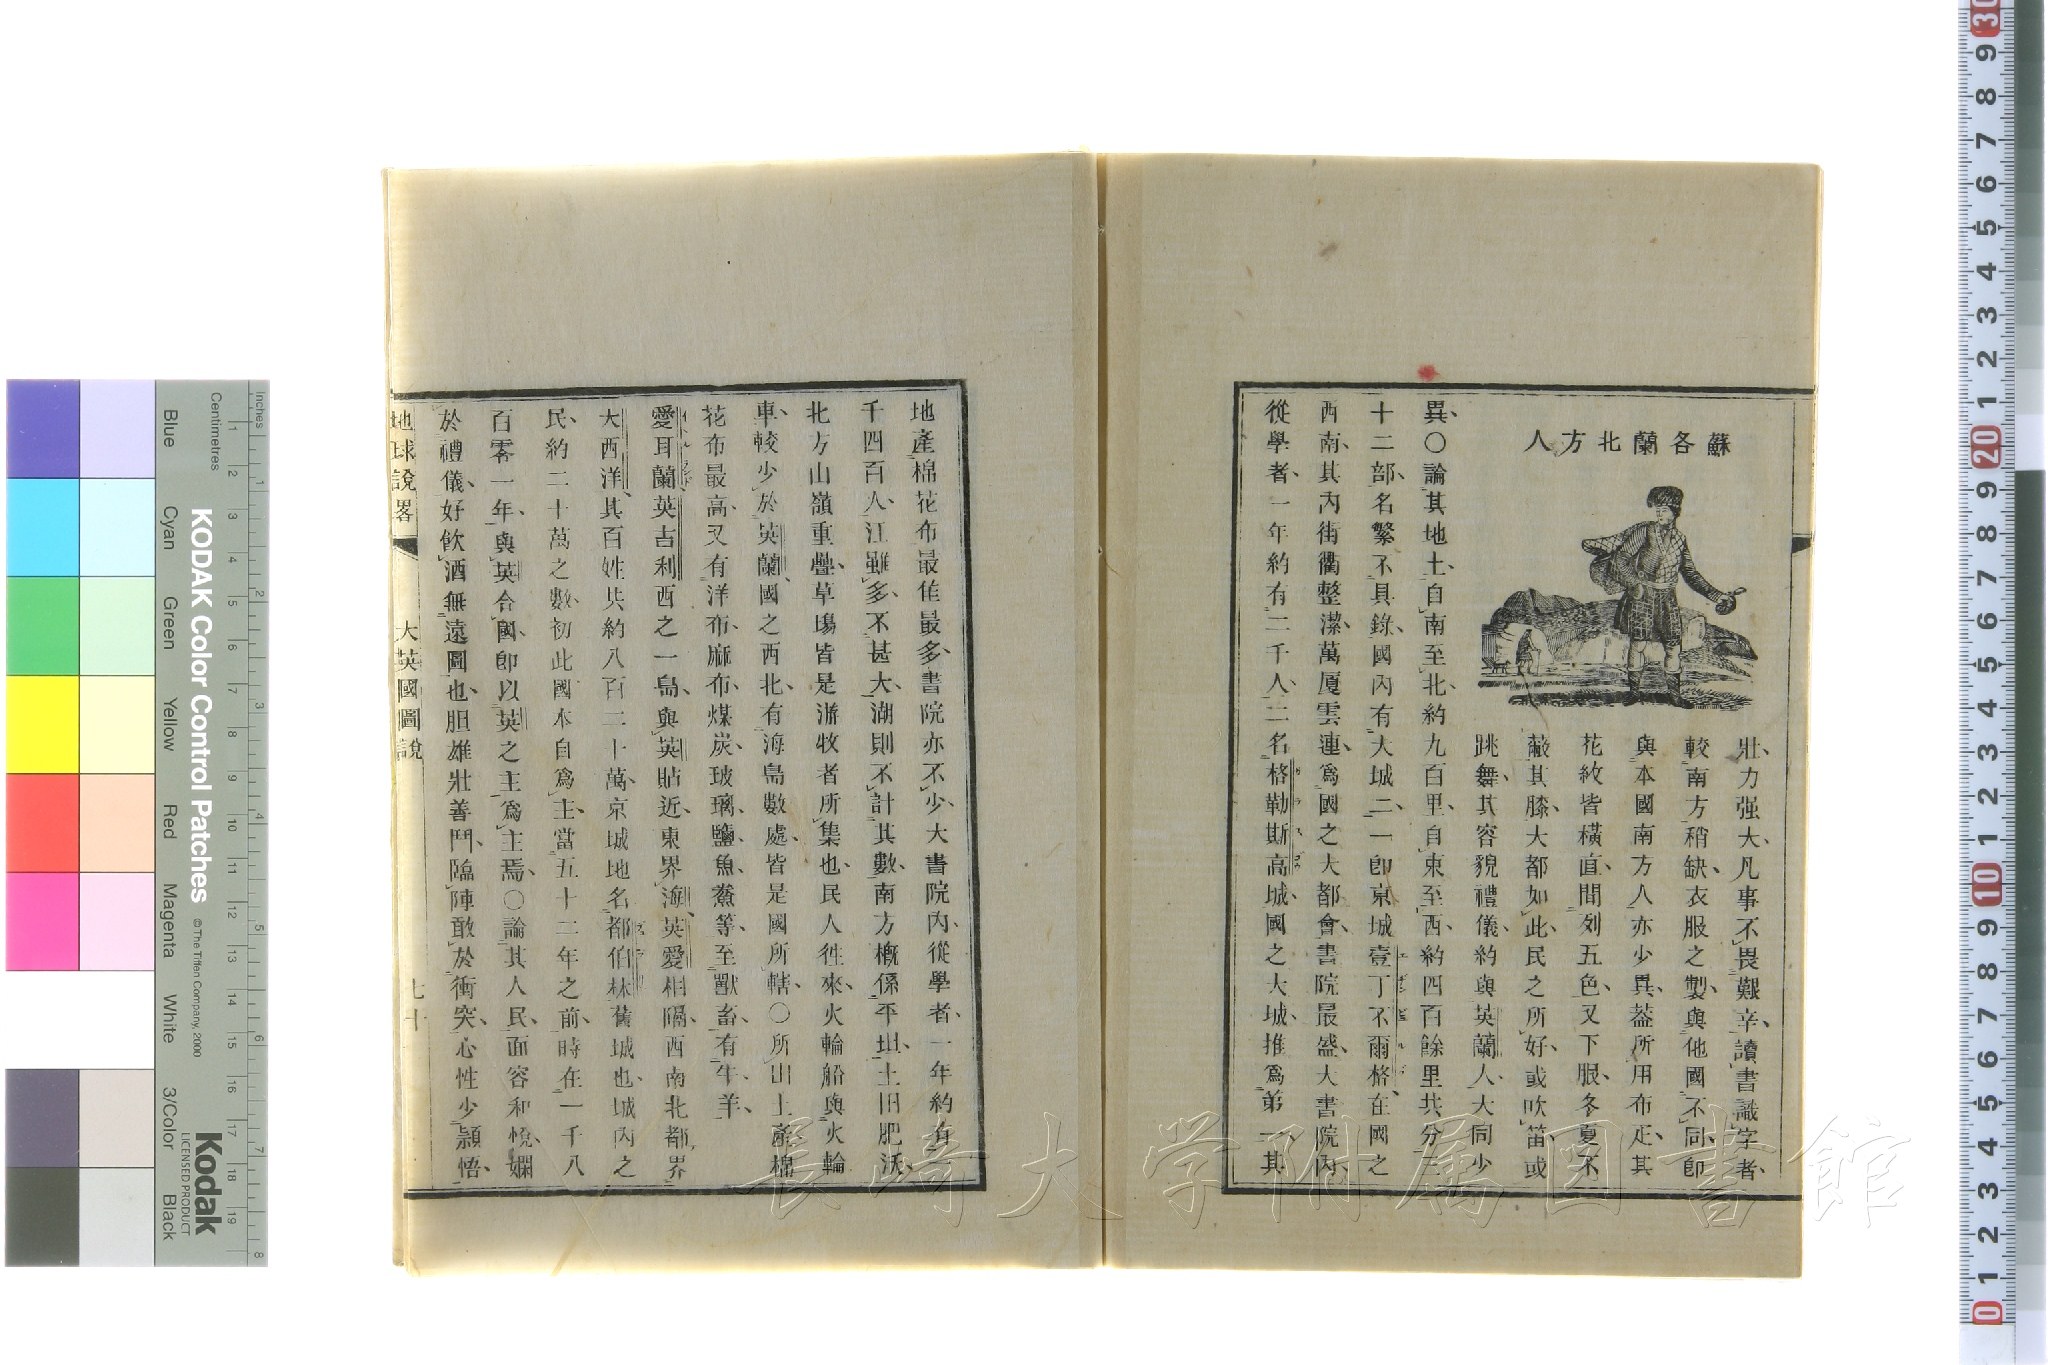 蘇各蘭北方人
壯力强大、凡事不畏艱辛、讀書識字者、
較南方稍缺、衣服之製、與他國不同、卽
與本國南方人亦少異、葢所用布疋、其
花紋皆橫直、間列五色、又下服、冬夏不
蔽其膝、大都如此、民之所好、或吹笛、或
跳舞、其容貌禮儀、約與英蘭人、大同少
異、〇論其地土、自南至北、約九百里、自東至西、約四百餘里、共分三
十二部、名繁不具錄、國內有大城二、一卽京城、壹丁不爾格、在國之
西南、其內街衢整潔、萬厦雲連、爲國之大都會、書院最盛、大書院內、
從學者、一年約有二千人、二名格勒斯高城、國之大城、推爲弟一、其
地產棉花布最佳最多、書院亦不少、大書院內、從學者、一年約有二
千四百人、江雖多、不甚大、湖則不計其數、南方槪係平坦、土田肥沃、
北方山嶺重疊、草塲皆是游牧者所集也、民人徃來、火輪船與火輪
車、較少於英蘭、國之西北、有海島數處、皆是國所轄、〇所出土產、棉
花布最高、又有洋布、麻布、煤炭、玻璃、鹽、魚、鯗等、至獸畜、有牛、羊、
愛耳蘭、英吉利西之一島、與英貼近、東界海、英愛相隔、西南北都界
大西洋、其百姓共約八百二十萬、京城地名都伯林、舊城也、城內之
民、約二十萬之數、初此國本自爲主、當五十二年之前、時在一千八
百零一年、與英合國、卽以英之主爲主焉、〇論其人民、面容和悅、嫻
於禮儀、好飲酒無遠圖也、胆雄壯善鬥、臨陣敢於衝突、心性少頴悟、
地球說畧
大英國圖說
七十
KODAK Color Control Patches
© The Tiffen Company, 2000
Kodak
LICENSED PRODUCT
Inches
Centimetres
Blue
Cyan
Green
Yellow
Red
Magenta
White
3/Color
Black
長崎大学附属図書館